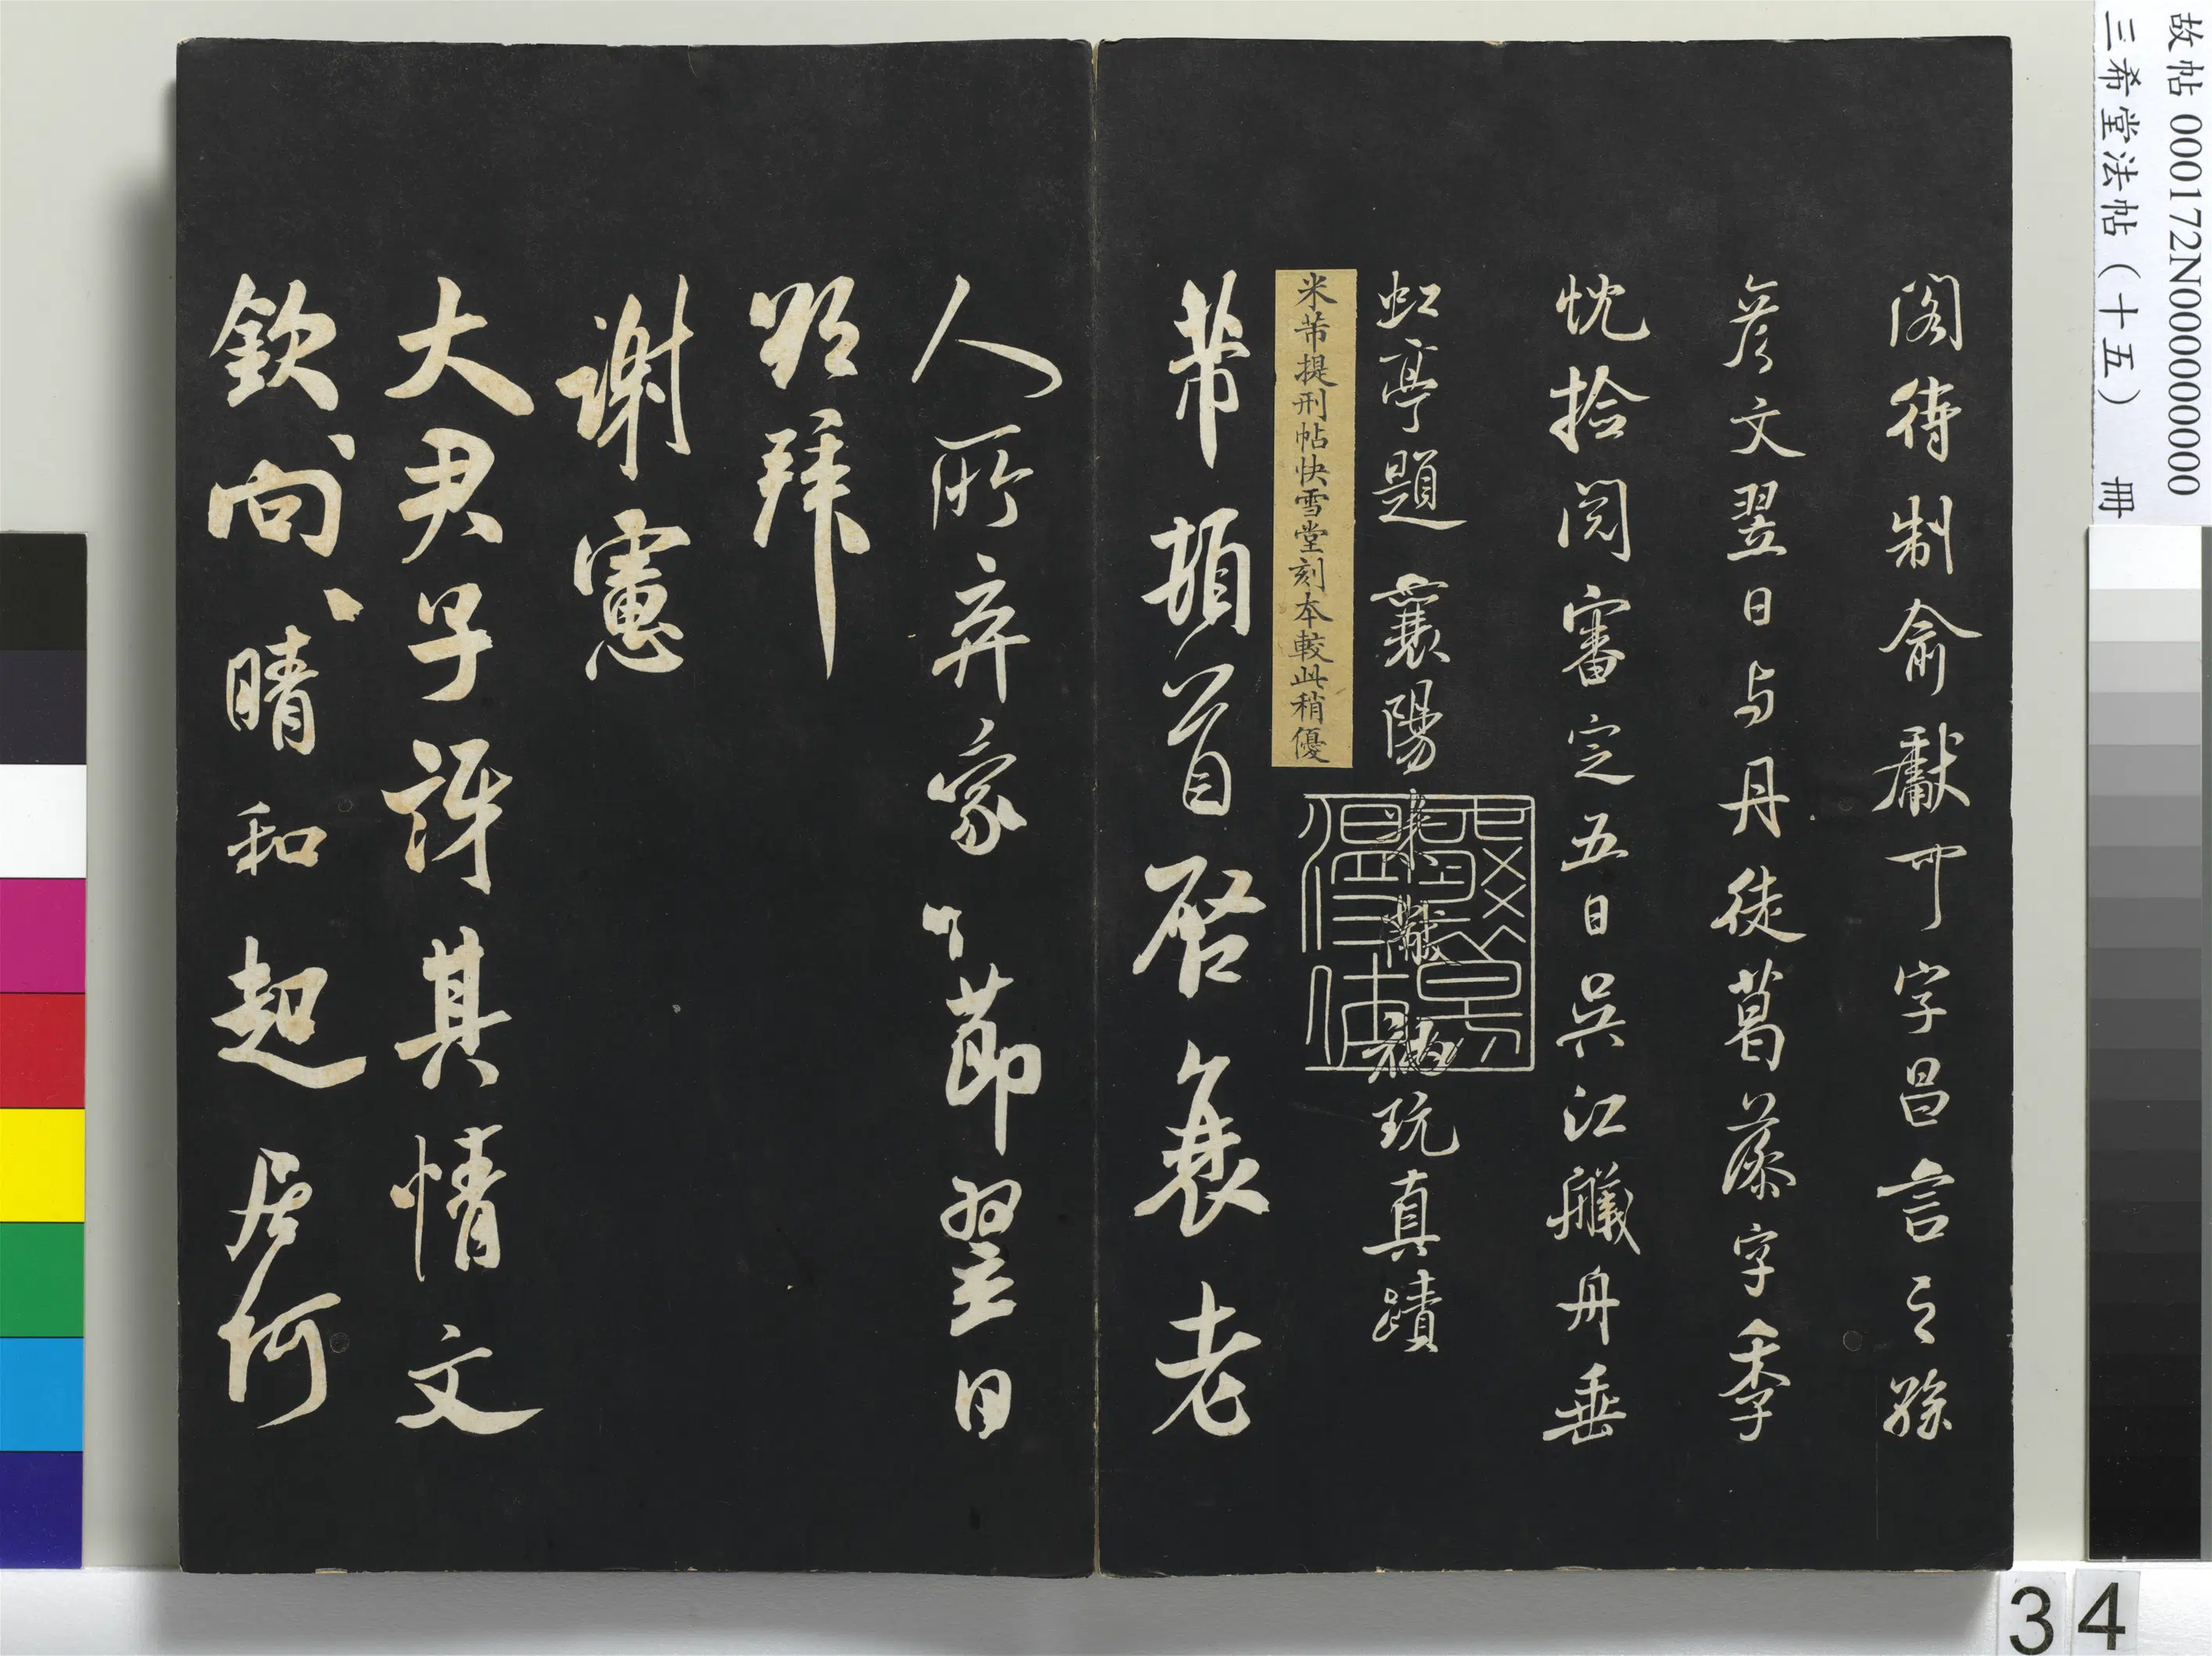 故帖 000172N000000000
三希堂法帖（十五） 冊
閣待制俞獻可字昌言之孫
彥文翌日与丹徒葛藻字季
忱拾閱審定五日吳江艤舟垂
虹亭題 襄陽米黻秘玩真蹟
米芾提刑帖快雪堂刻本較此稍優
芾頓首啓衰老
人所弃蒙節翌日
拜
謝憲
大君子訝其情文
欽向、、晴和起居何
34